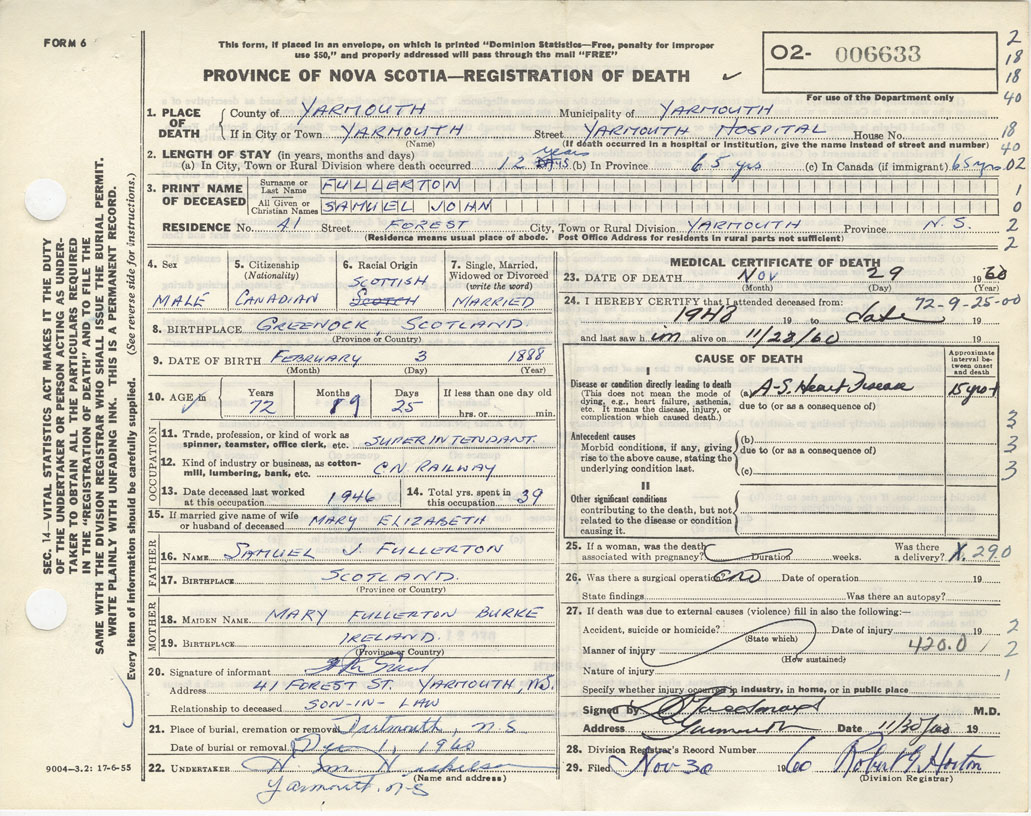 FORM 6
This form, if placed in an envelope, on which is printed "Dominion Statistics—Free, penalty for improper
use $50," and properly addressed will pass through the mail "FREE"
PROVINCE OF NOVA SCOTIA—REGISTRATION OF DEATH ✓
O2- 006633
For use of the Department only
2
18
18
40
18
40
02
1
0
2
2
SEC. 14—VITAL STATISTICS ACT MAKES IT THE DUTY
OF THE UNDERTAKER OR PERSON ACTING AS UNDER-
TAKER TO OBTAIN ALL THE PARTICULARS REQUIRED
IN THE "REGISTRATION OF DEATH" AND TO FILE THE
SAME WITH THE DIVISION REGISTRAR WHO SHALL ISSUE THE BURIAL PERMIT.
WRITE PLAINLY WITH UNFADING INK. THIS IS A PERMANENT RECORD.
Every item of information should be carefully supplied. (See reverse side for instructions.)
1. PLACE OF DEATH
County of YARMOUTH Municipality of YARMOUTH
If in City or Town YARMOUTH Street YARMOUTH HOSPITAL House No.
(Name) (If death occurred in a hospital or institution, give the name instead of street and number)
2. LENGTH OF STAY (in years, months and days)
(a) In City, Town or Rural Division where death occurred 12 years DAYS (b) In Province 65 yrs (c) In Canada (if immigrant) 65 yrs.
3. PRINT NAME OF DECEASED
Surname or Last Name FULLERTON
All Given or Christian Names SAMUEL JOHN
RESIDENCE No. 41 Street FOREST City, Town or Rural Division YARMOUTH Province N.S.
(Residence means usual place of abode. Post Office Address for residents in rural parts not sufficient)
4. Sex MALE
5. Citizenship (Nationality) CANADIAN
6. Racial Origin SCOTTISH SCOTCH
7. Single, Married, Widowed or Divorced (write the word) MARRIED
8. BIRTHPLACE GREENOCK, SCOTLAND
(Province or Country)
9. DATE OF BIRTH FEBRUARY 3 1888
(Month) (Day) (Year)
10. AGE in Years 72 Months 9 Days 25 If less than one day old hrs. or min.
OCCUPATION
11. Trade, profession, or kind of work as
spinner, teamster, office clerk, etc. SUPERINTENDANT.
12. Kind of industry or business, as cotton-
mill, lumbering, bank, etc. C.N. RAILWAY
13. Date deceased last worked
at this occupation 1946
14. Total yrs. spent in
this occupation 39
15. If married give name of wife
or husband of deceased MARY ELIZABETH
FATHER
16. NAME SAMUEL J. FULLERTON
17. BIRTHPLACE SCOTLAND.
(Province or Country)
MOTHER
18. MAIDEN NAME MARY FULLERTON BURKE
19. BIRTHPLACE IRELAND.
(Province or Country)
20. Signature of informant
Address 41 FOREST ST. YARMOUTH, N.S.
Relationship to deceased SON-IN-LAW
21. Place of burial, cremation or removal Dartmouth, N.S
Date of burial or removal Dec 1, 1960
22. UNDERTAKER
(Name and address)
Yarmouth, N-S
9004—3.2: 17-6-55
MEDICAL CERTIFICATE OF DEATH
23. DATE OF DEATH Nov 29 1960
(Month) (Day) (Year)
24. I HEREBY CERTIFY that I attended deceased from: 72-9-25-00
1948 19 to date 19
and last saw him alive on 11/28/60 19
CAUSE OF DEATH
Approximate interval between onset and death
I
Disease or condition directly leading to death
(This does not mean the mode of
dying, e.g., heart failure, asthenia,
etc. It means the disease, injury, or
complication which caused death.)
(a) A-S Heart Disease 15 yrs +
due to (or as a consequence of)
Antecedent causes
Morbid conditions, if any, giving
rise to the above cause, stating the
underlying condition last.
(b)
due to (or as a consequence of)
(c)
3
3
3
II
Other significant conditions
contributing to the death, but not
related to the disease or condition
causing it.
25. If a woman, was the death
associated with pregnancy? Duration weeks. Was there
a delivery? X.290
26. Was there a surgical operation no Date of operation 19
State findings Was there an autopsy?
27. If death was due to external causes (violence) fill in also the following:—
Accident, suicide or homicide? Date of injury 19 2
(State which)
Manner of injury 420.0 1 2
(How sustained)
Nature of injury 1
Specify whether injury occurred in industry, in home, or in public place
Signed by M.D.
Address Yarmouth Date 11/30/60 19
28. Division Registrar's Record Number
29. Filed Nov 30 1960 Robert G Horton
(Division Registrar)